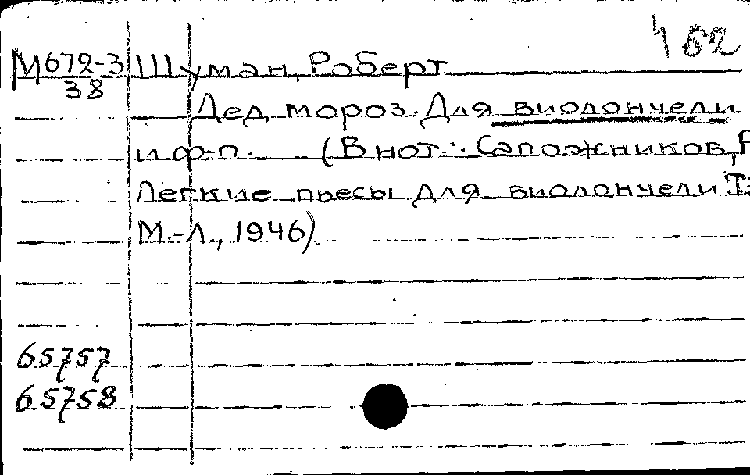 402
М672-3 Шуман, Роберт
38
Дед мороз. Для виолончели
и ф-п. (В нот.: Сапожников, Р
Легкие пьесы для виолончели
М.-Л., 1946)
65757
65758